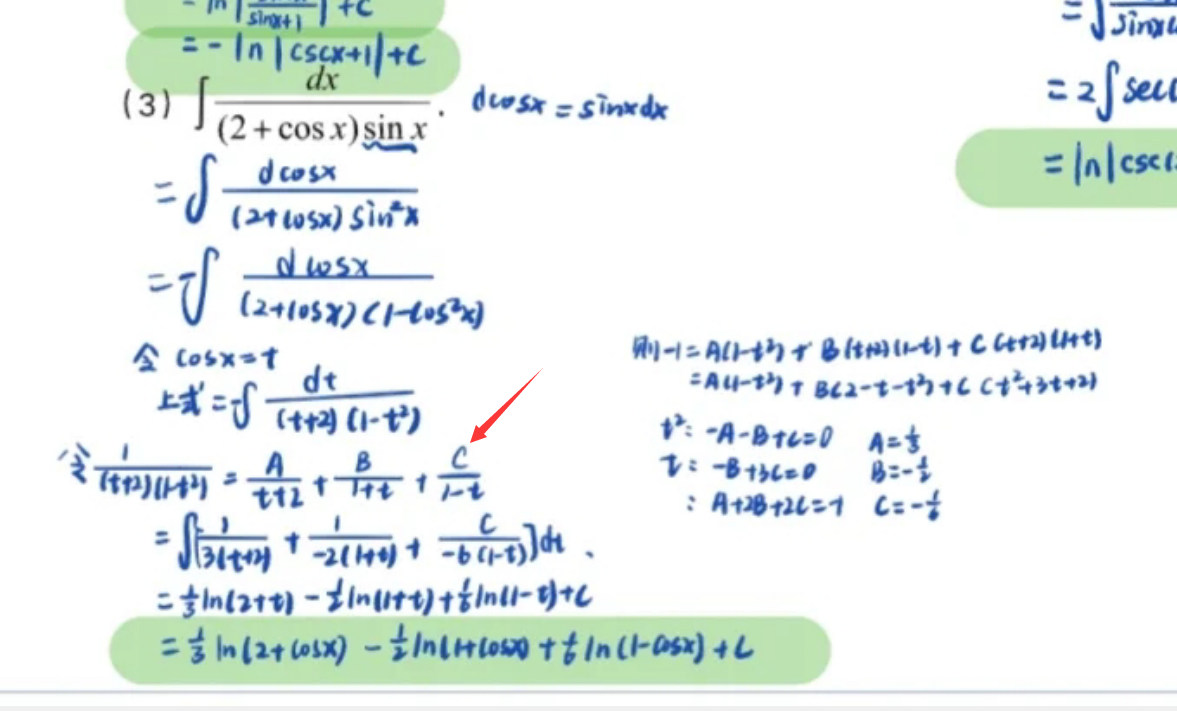 = ln | sinx+1 | + C
= - ln | cscx+1 | + C
(3) ∫ dx / (2 + cos x) sin x . dcosx = sinxdx
= ∫ dcosx / (2+cosx) sin²x
= -∫ dcosx / (2+cosx)(1-cos²x)
令 cosx = t
上式 = -∫ dt / (t+2)(1-t²)
令 1 / (t+2)(1-t²) = A / t+2 + B / 1+t + C / 1-t
= ∫[ 1 / 3(t+2) + 1 / -2(1+t) + C / -6(1-t) ]dt 、
= 1/3 ln(2+t) - 1/2 ln(1+t) + 1/6 ln(1-t) + C
= 1/3 ln(2+cosx) - 1/2 ln(1+cosx) + 1/6 ln(1-cosx) + C
则 -1 = A(1-t²) + B(t+2)(1-t) + C(t+2)(1+t)
= A(1-t²) + B(2-t-t²) + C(t²+3t+2)
t²: -A-B+C=0 A=1/3
t: -B+3C=0 B=-1/2
: A+2B+2C=-1 C=-1/6
= ∫ sinx
= 2∫ sec
= ln|csc